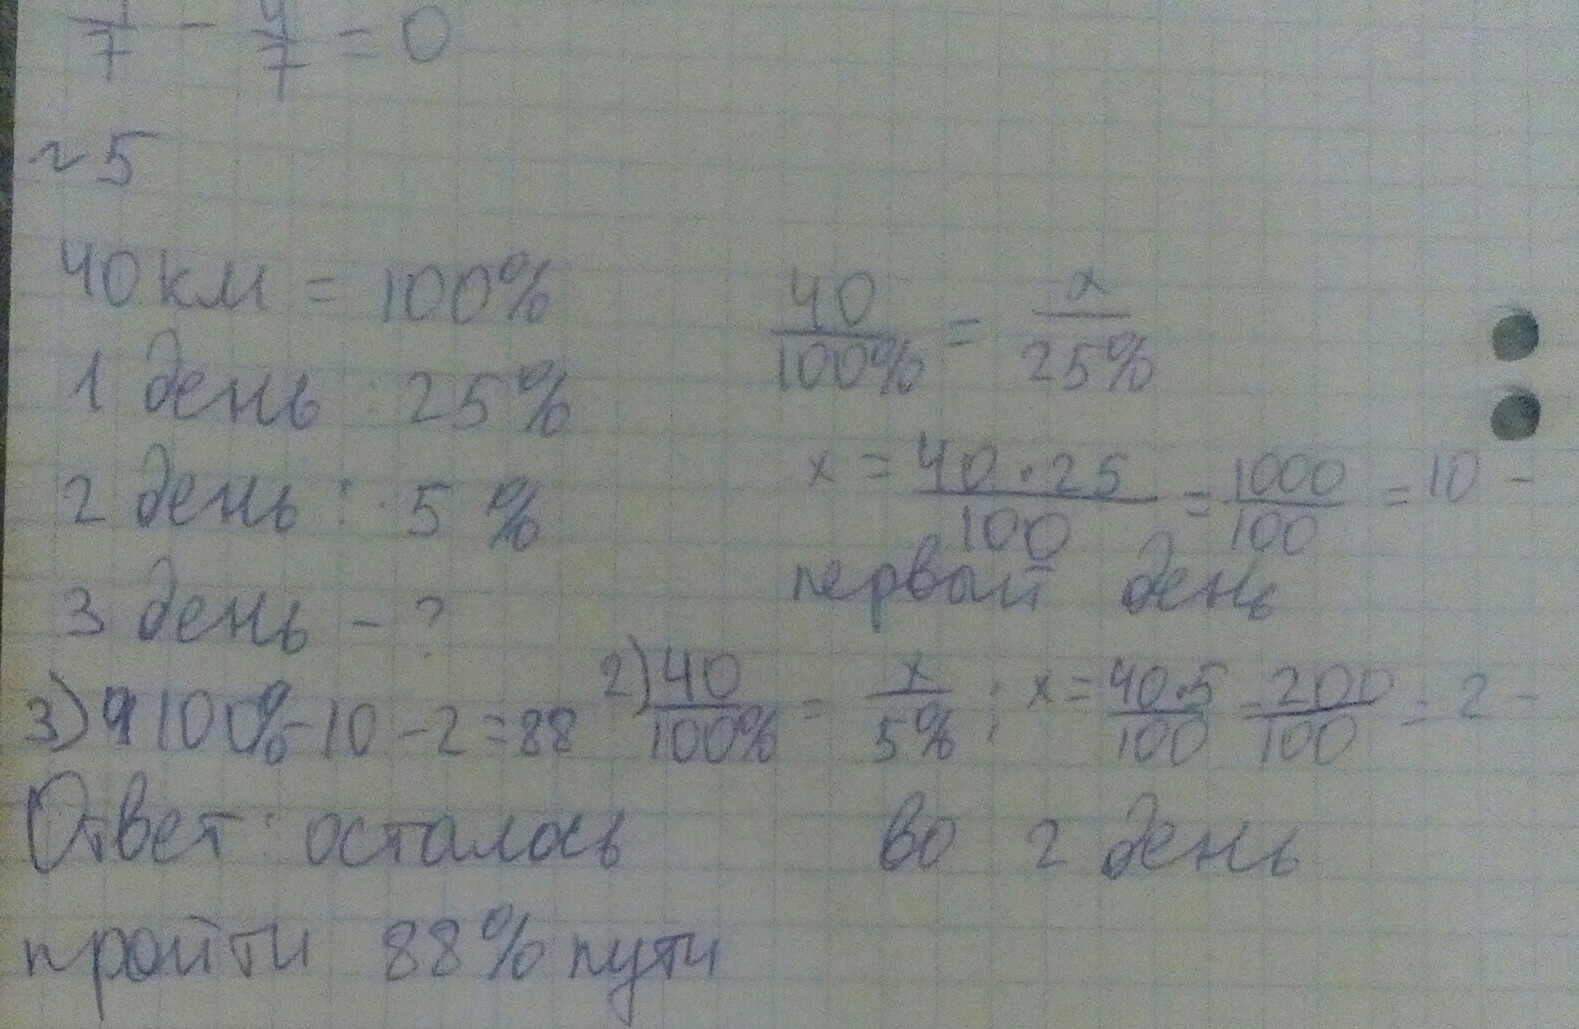 /7 - 4/7 = 0
~5
40 км = 100%
1 день : 25%
2 день : 5 %
3 день - ?
40/100% = x/25%
x = 40·25/100 = 1000/100 = 10 -
первый день
2) 40/100% = x/5% ; x = 40·5/100 = 200/100 = 2 -
во 2 день
3) 100% - 10 - 2 = 88
Ответ: осталось
пройти 88% пути